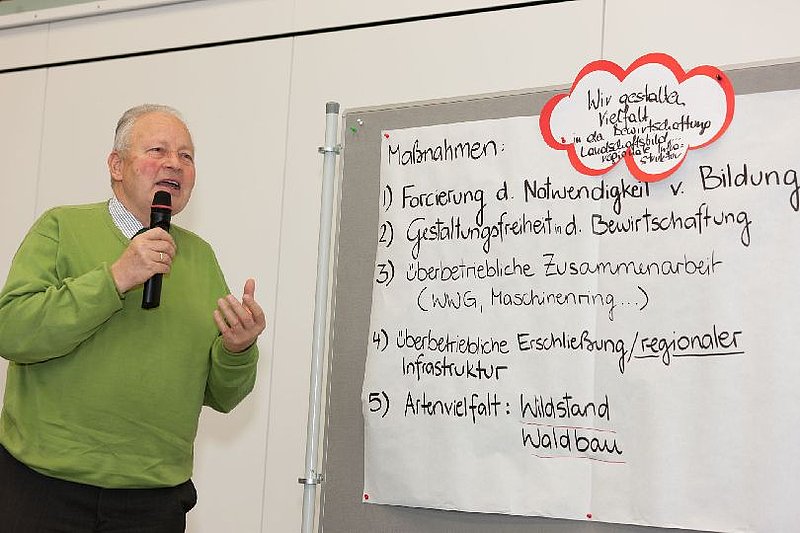 Wir gestalten
Vielfalt
in da Bewirtschaftung
Landschaftsbild...
regionale Infra-
struktur
Maßnahmen:
1) Forcierung d. Notwendigkeit v. Bildung
2) Gestaltungsfreiheit in d. Bewirtschaftung
3) überbetriebliche Zusammenarbeit
(WWG, Maschinenring...)
4) überbetriebliche Erschließung/regionaler
Infrastruktur
5) Artenvielfalt: Wildstand
Waldbau